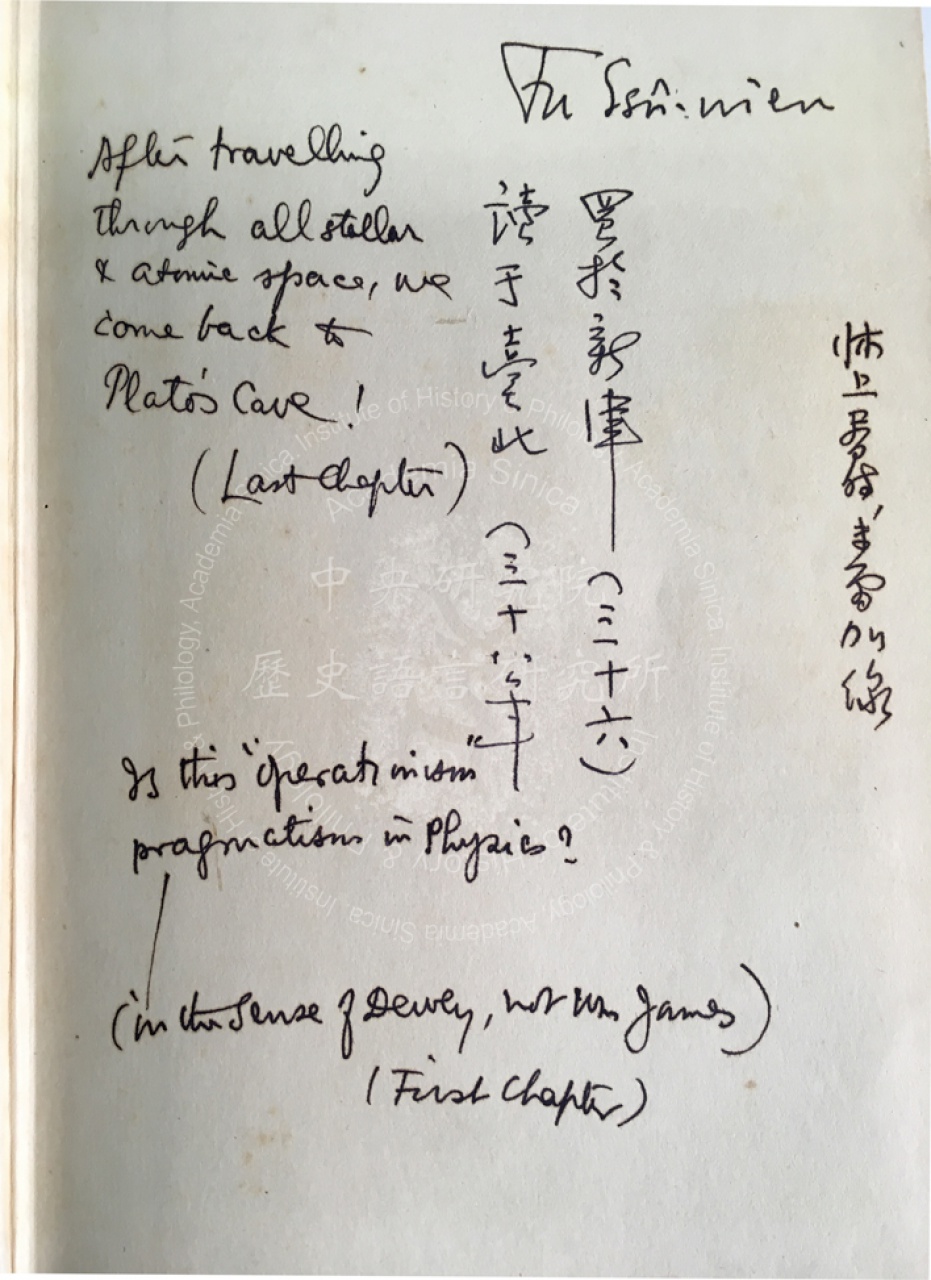 Fu Ssŭ-nien
After travelling
through all stellar
& atomic space, we
come back to
Plato's Cave!
(Last Chapter)
買於新津——(三十六)
讀于臺北(三十八年)
床上看時,未加線
Is this "operationism"
pragmatism in Physics?
(in the sense of Dewey, not Wm James)
(First Chapter)
中央研究院
歷史語言研究所
Institute of History & Philology, Academia Sinica